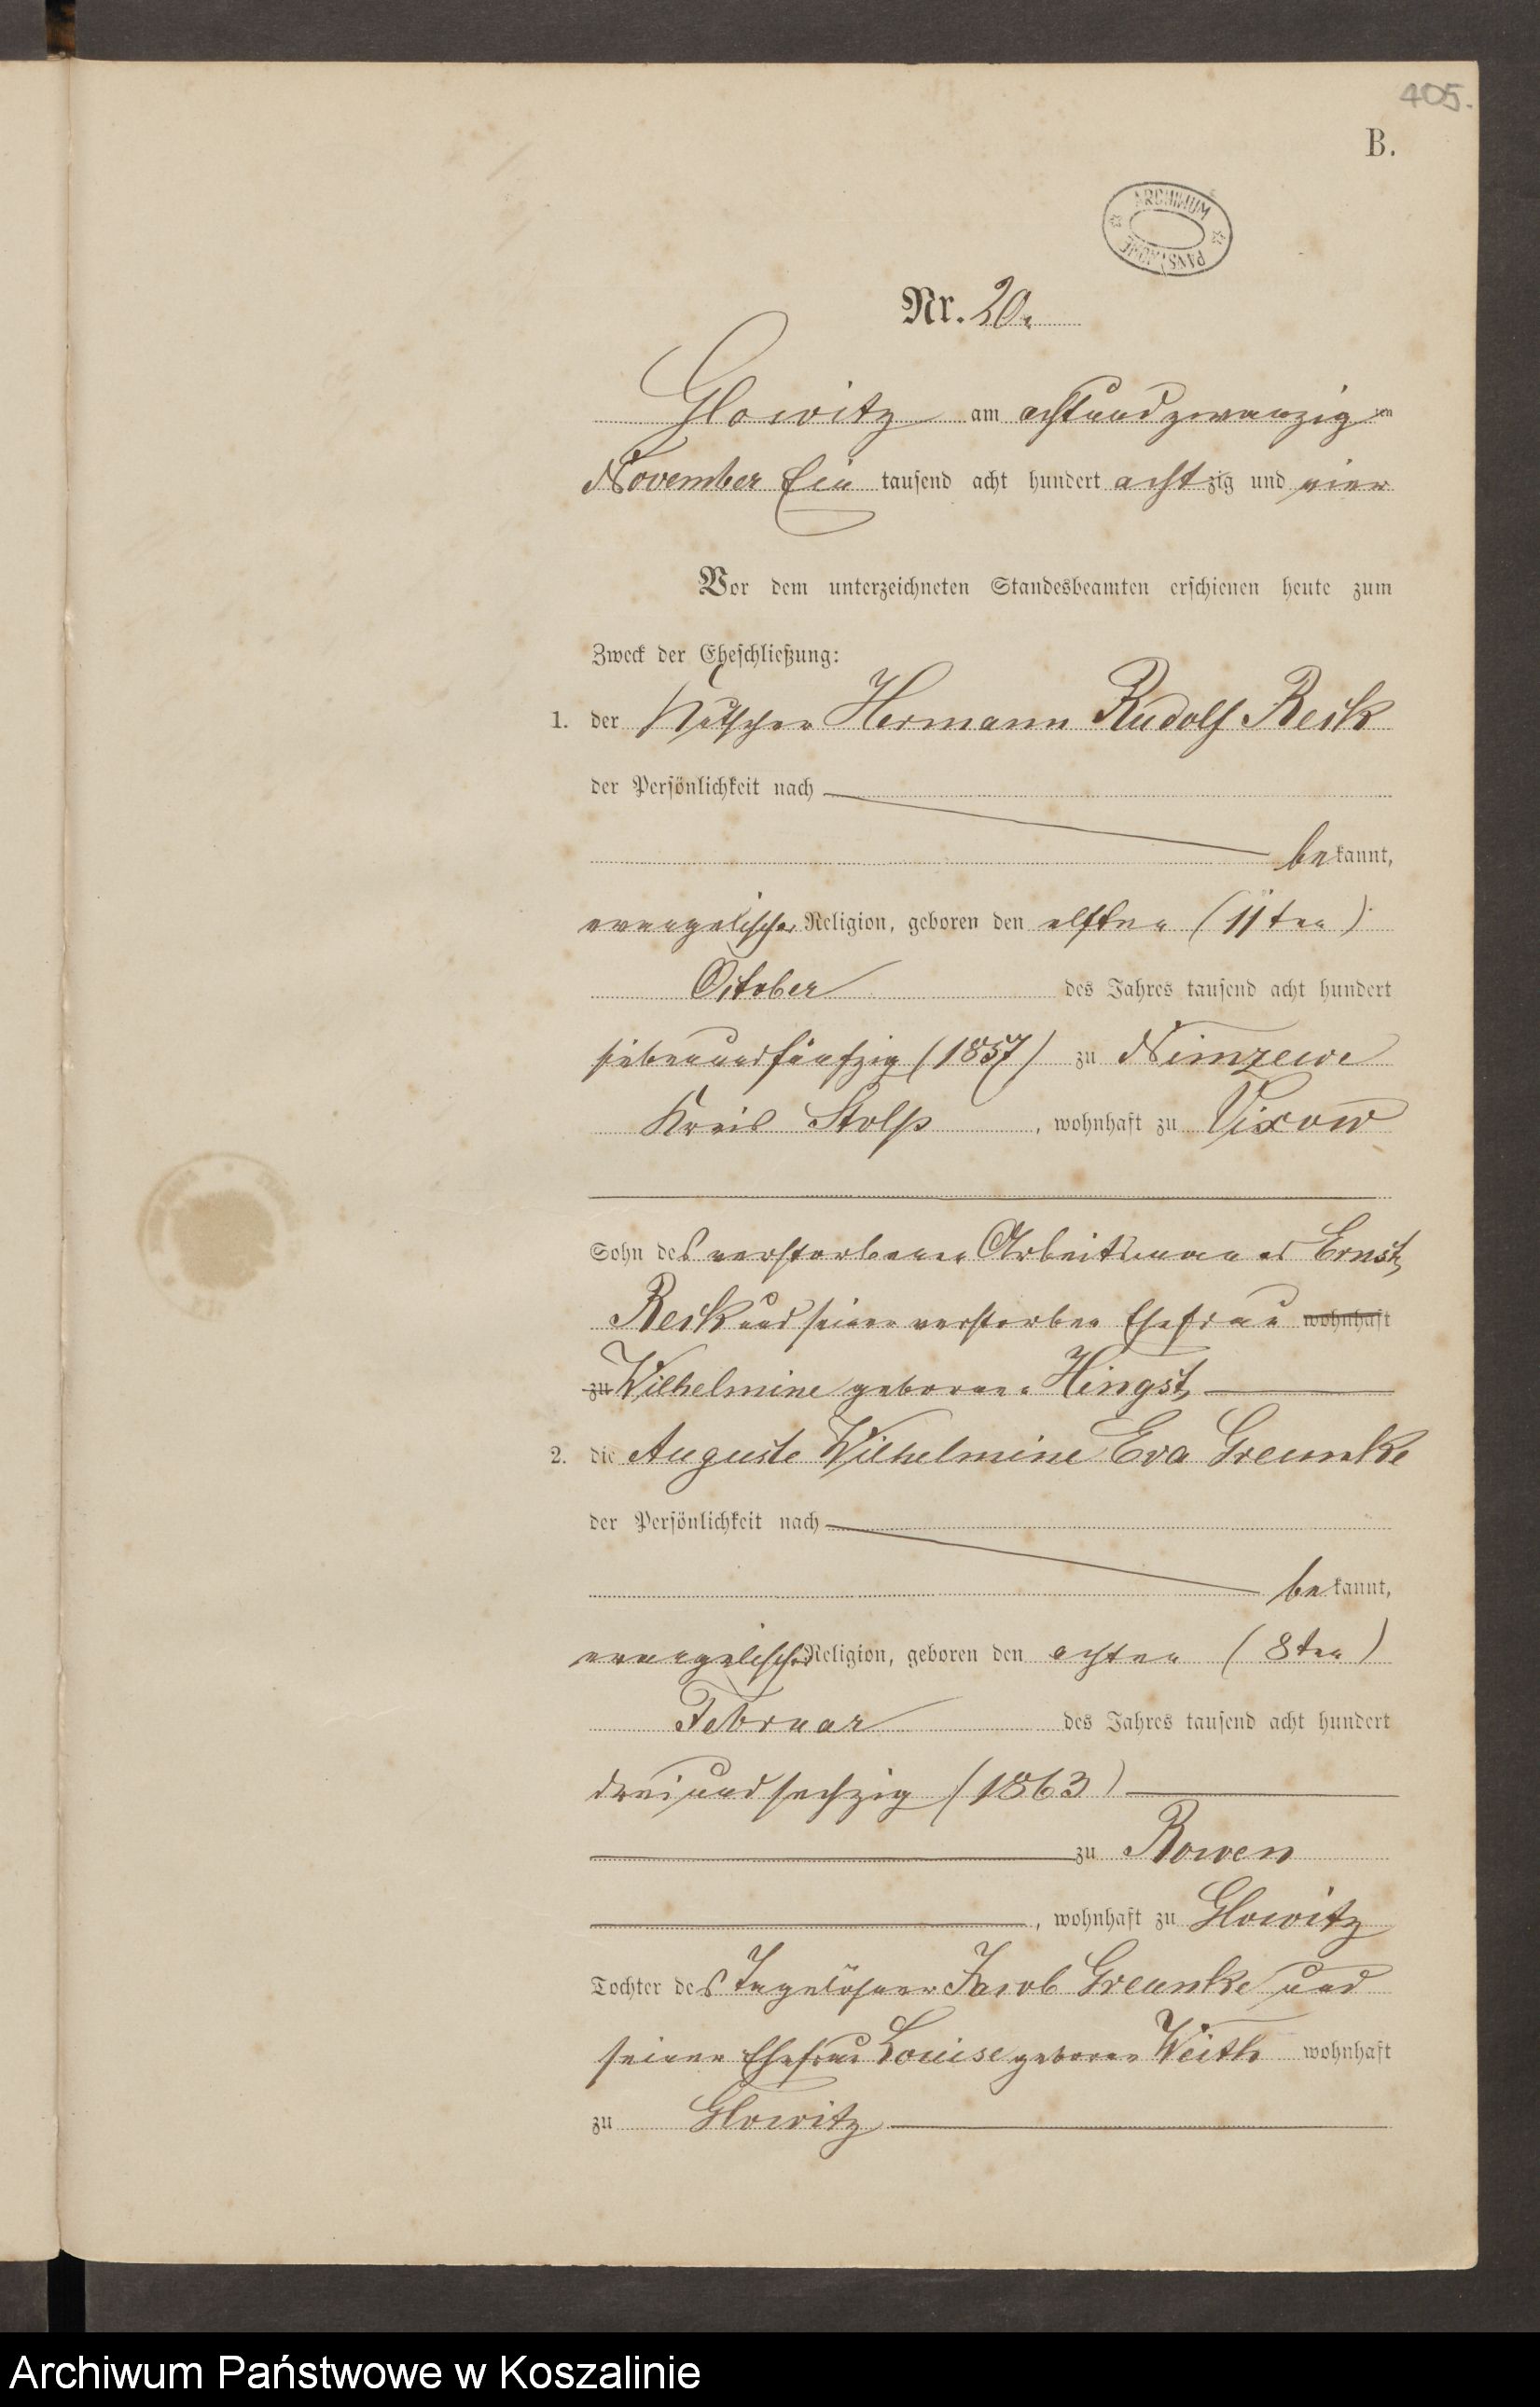 405.
B.
ARCHIWUM
PAŃSTWOWE
Nr. 20.
Glowitz am achtundzwanzigten
November Ein tausend acht hundert achtzig und vier
Vor dem unterzeichneten Standesbeamten erschienen heute zum
Zweck der Eheschließung:
1. der Kutscher Hermann Rudolf Resk
der Persönlichkeit nach
bekannt,
evangelischer Religion, geboren den elften (11ten)
October des Jahres tausend acht hundert
siebenundfünfzig (1857) zu Nimzewe
Kreis Stolp, wohnhaft zu Vixow
Sohn des verstorbenen Arbeitsmannes Ernst
Resk und seiner verstorben Ehefrau wohnhaft
zu Wilhelmine geborene Hingst
2. die Auguste Wilhelmine Eva Greunke
der Persönlichkeit nach
bekannt,
evangelischer Religion, geboren den achten (8ten)
Februar des Jahres tausend acht hundert
dreiundsechzig (1863)
zu Rowen
, wohnhaft zu Glowitz
Tochter des Tagelöhner Jacob Greunke und
seiner Ehefrau Louise geborne Weith wohnhaft
zu Glowitz
Archiwum Państwowe w Koszalinie